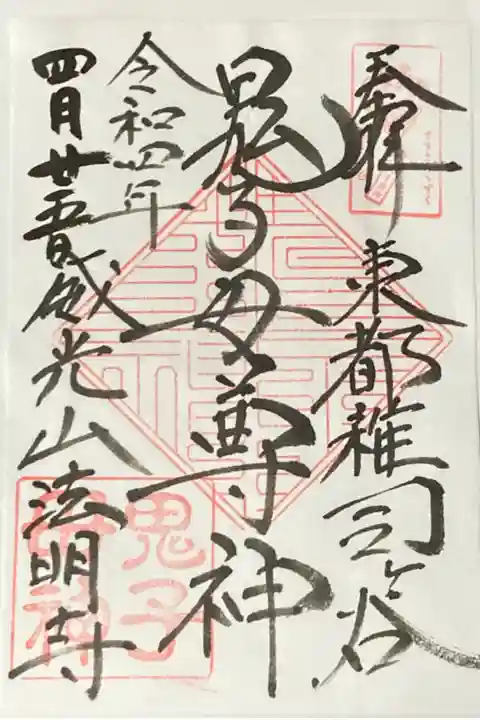 奉拝
東都雑司ヶ谷
鬼子母尊神
令和四年
四月廿五日
威光山法明寺
鬼子
神